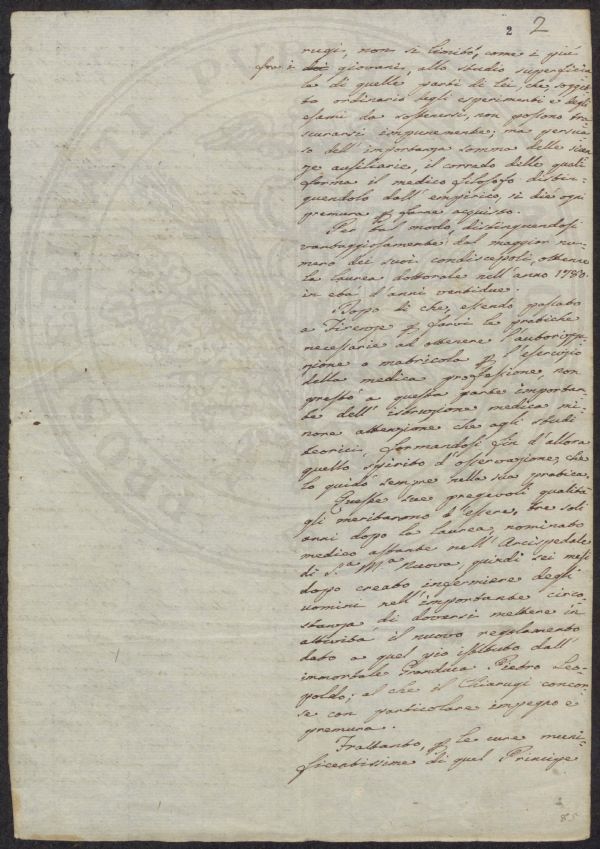 2 2
rugi, non si limitò, come i più
fra i dei giovani, allo studio superficia
le di quelle parti di lei, che sogget
to ordinario degli esperimenti e degli
esami da sostenersi, non possono tra
scurarsi impunemente; ma persua
so dell' importanza somma delle scien
ze ausiliarie, il corredo delle quali
forma il medico filosofo distin-
guendolo dall' empirico, si diè ogni
premura p farne acquisto.
Per tal modo, distinguendosi
vantaggiosamente dal maggior nu-
mero dei suoi condiscepoli, ottenne
la laurea dottorale nell' anno 1780.
in età d'anni ventidue.
Dopo di che, essendo passato
a Firenze p farvi le pratiche
necessarie ad ottenere l'autorizza
zione o matricola p l'esercizio
della medica professione, non
prestò a questa parte importan
te dell' istruzione medica mi-
nore attenzione che agli studi
teorici, formandosi fin d'allora
quello spirito d'osservazione, che
lo guidò sempre nella sua pratica.
Queste sue pregevoli qualità
gli meritarono d'essere, tre soli
anni dopo la laurea, nominato
medico astante nell' Arcispedale
di S.a M.a Nuova, quindi sei mesi
dopo creato infermiere degli
uomini nell' importante circo
stanza di doversi mettere in
attività il nuovo regolamento
dato a quel pio istituto dall'
immortale Granduca Pietro Leo-
poldo; al che il Chiarugi concor
se con particolare impegno e
premura.
Frattanto, p le cure muni-
ficentissime di quel Principe
85